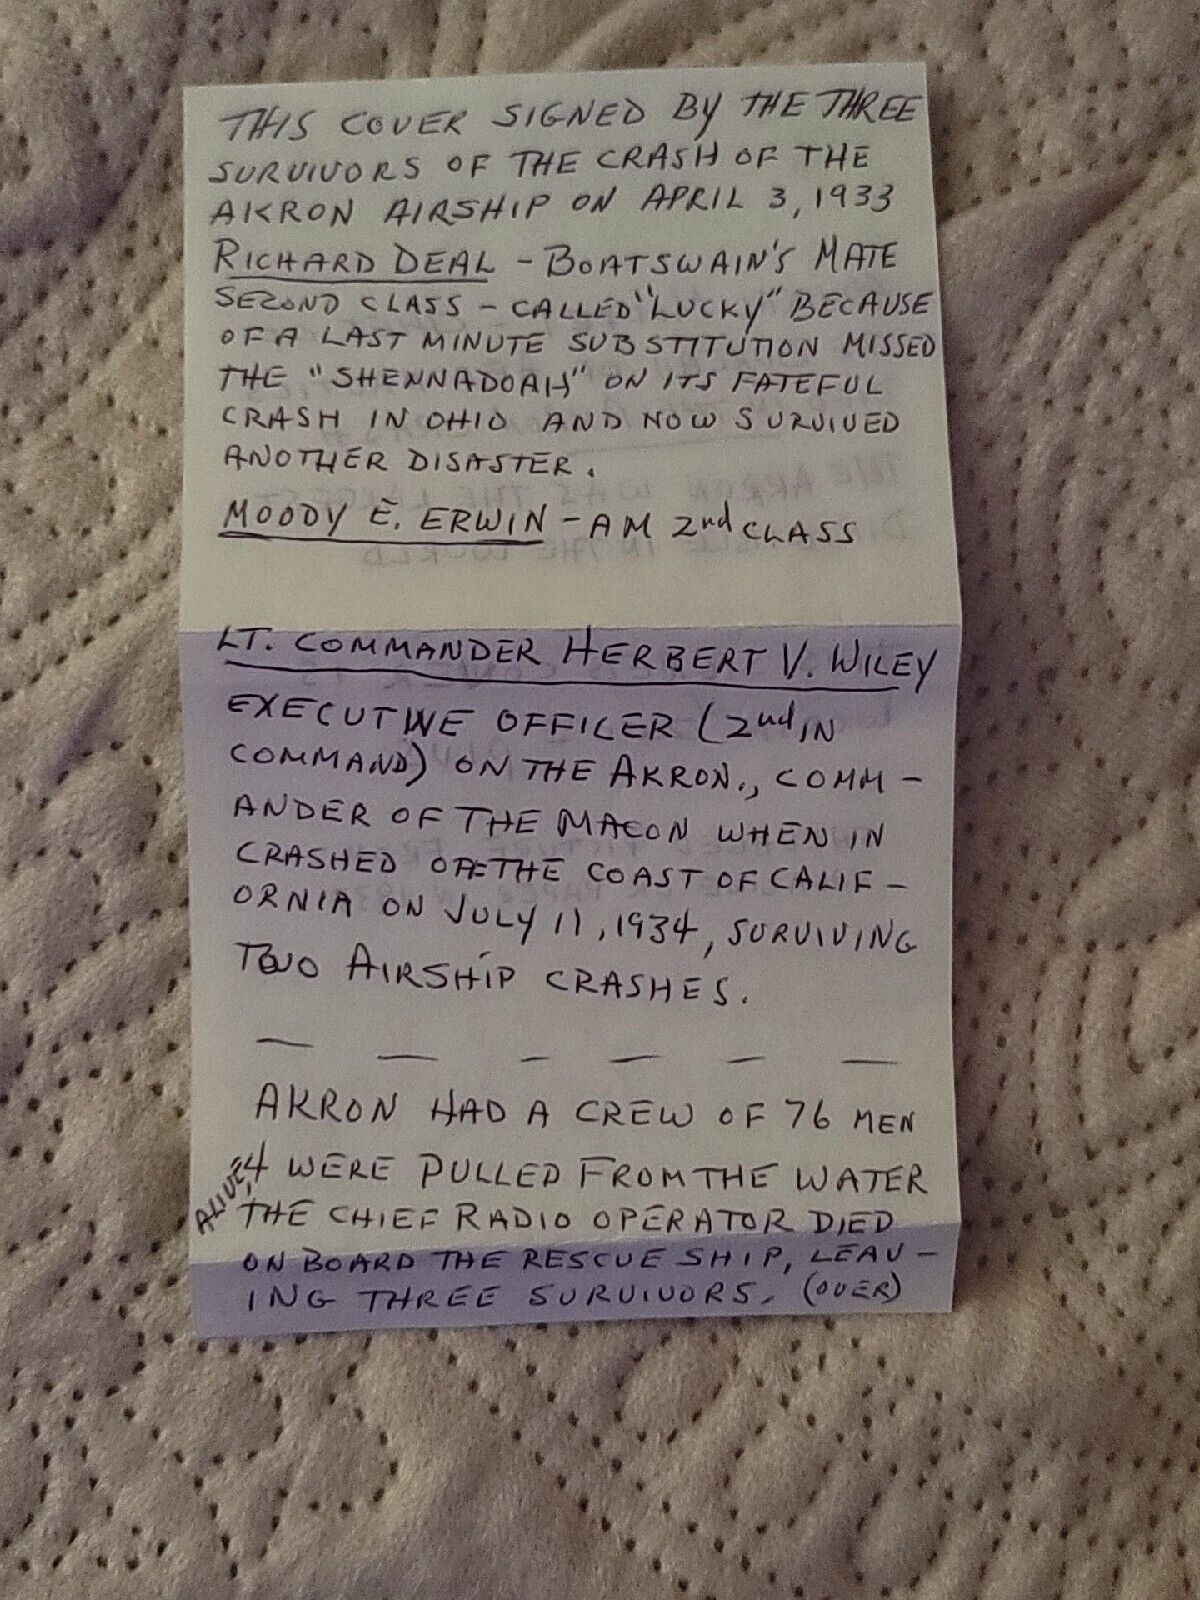 THIS COVER SIGNED BY THE THREE
SURVIVORS OF THE CRASH OF THE
AKRON AIRSHIP ON APRIL 3, 1933
RICHARD DEAL - BOATSWAIN'S MATE
SECOND CLASS - CALLED "LUCKY" BECAUSE
OF A LAST MINUTE SUBSTITUTION MISSED
THE "SHENNADOAH" ON ITS FATEFUL
CRASH IN OHIO AND NOW SURVIVED
ANOTHER DISASTER.
MOODY E. ERWIN - AM 2nd CLASS
LT. COMMANDER HERBERT V. WILEY
EXECUTIVE OFFICER (2nd IN
COMMAND) ON THE AKRON., COMM-
ANDER OF THE MACON WHEN IN
CRASHED OFF THE COAST OF CALIF-
ORNIA ON JULY 11, 1934, SURVIVING
TWO AIRSHIP CRASHES.
— — — — — —
AKRON HAD A CREW OF 76 MEN
4 WERE PULLED FROM THE WATER
ALIVE,
THE CHIEF RADIO OPERATOR DIED
ON BOARD THE RESCUE SHIP, LEAV-
ING THREE SURVIVORS. (OVER)